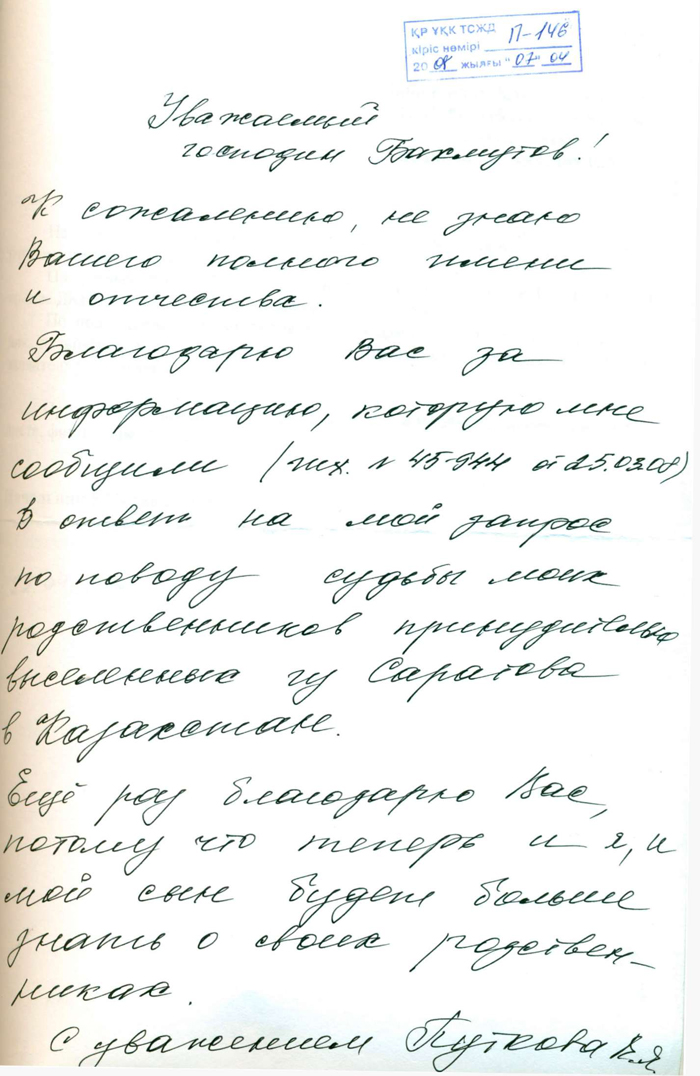 ҚР ҰҚК ТСЖД
кіріс нөмірі П-146
20 08 жылғы "07" 04
Уважаемый
господин Бакмутов!
К сожалению, не знаю
Вашего полного имени
и отчества.
Благодарю Вас за
информацию, которую мне
сообщили (исх. № 45-944 от 25.03.08)
в ответ на мой запрос
по поводу судьбы моих
родственников принудительно
выселенных из Саратова
в Казахстан.
Ещё раз благодарю Вас,
потому что теперь и я, и
мой сын будем больше
знать о своих родствен-
никах.
С уважением Путкова